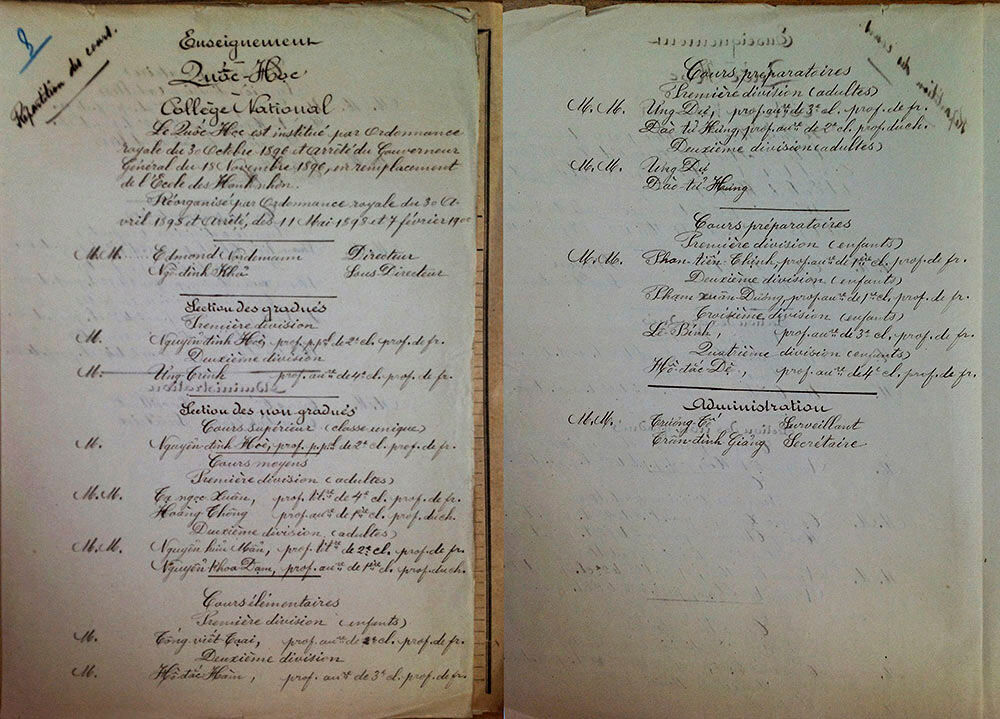 8
Répartition des cours.
Enseignement
Quốc-Học
Collège National
Le Quốc Học est institué par Ordonnance
royale du 30 Octobre 1896 et arrêté du Gouverneur
Général du 18 Novembre 1896, en remplacement
de l'Ecole des Hanh nhơn.
Réorganisé par Ordonnance royale du 30 A-
vril 1898 et Arrêté, des 11 Mai 1898 et 7 février 1900
M.M. Edmond Nordemann Directeur
Ngô đình Khả Sous Directeur
Section des gradués
Première division
M. Nguyễn đình Hoè, prof. ppal. de 2e cl. prof. de fr.
Deuxième division
M. Ưng Trình prof. aure de 4e cl. prof. de fr.
Section des non gradués
Cours supérieur (classe unique)
M. Nguyễn đình Hoè, prof. ppal. de 2e cl. prof. de fr.
Cours moyens
Première division (adultes)
M.M. Tạ ngọc Xuân, prof. titre de 4e cl. prof. de fr.
Hoàng Thông prof. aure de 1ère cl. prof. de ch.
Deuxième division (adultes)
M.M. Nguyễn hữu Mẫn, prof. titre de 2e cl. prof. de fr.
Nguyễn Khoa Đạm, prof. aure de 1ère cl. prof. de ch.
Cours élémentaires
Première division (enfants)
M. Tống viết Toại, prof. aure de 2e cl. prof. de fr.
Deuxième division
M. Hồ đắc Hàm, prof. aure de 3e cl. prof. de fr.
Cours préparatoires
Première division (adultes)
M.M. Ưng Dự, prof. aure de 3e cl. prof. de fr.
Đắc tử Hưng, prof. aure de 2e cl. prof. du ch.
Deuxième division (adultes)
M.M. Ưng Dự
Đắc-tử-Hưng
Cours préparatoires
Première division (enfants)
M.M. Phan tiến Thịnh, prof. aure de 1ère cl. prof. de fr.
Deuxième division (enfants)
Phạm xuân Dương, prof. aure de 1re cl. prof. de fr.
Troisième division (enfants)
Lê Bính, prof. aure de 3e cl. prof. de fr.
Quatrième division (enfants)
Hồ đắc Đệ, prof. aure de 4e cl. prof. de fr.
Administration
M.M. Trương Tế Surveillant
Trần đình Giảng Secrétaire